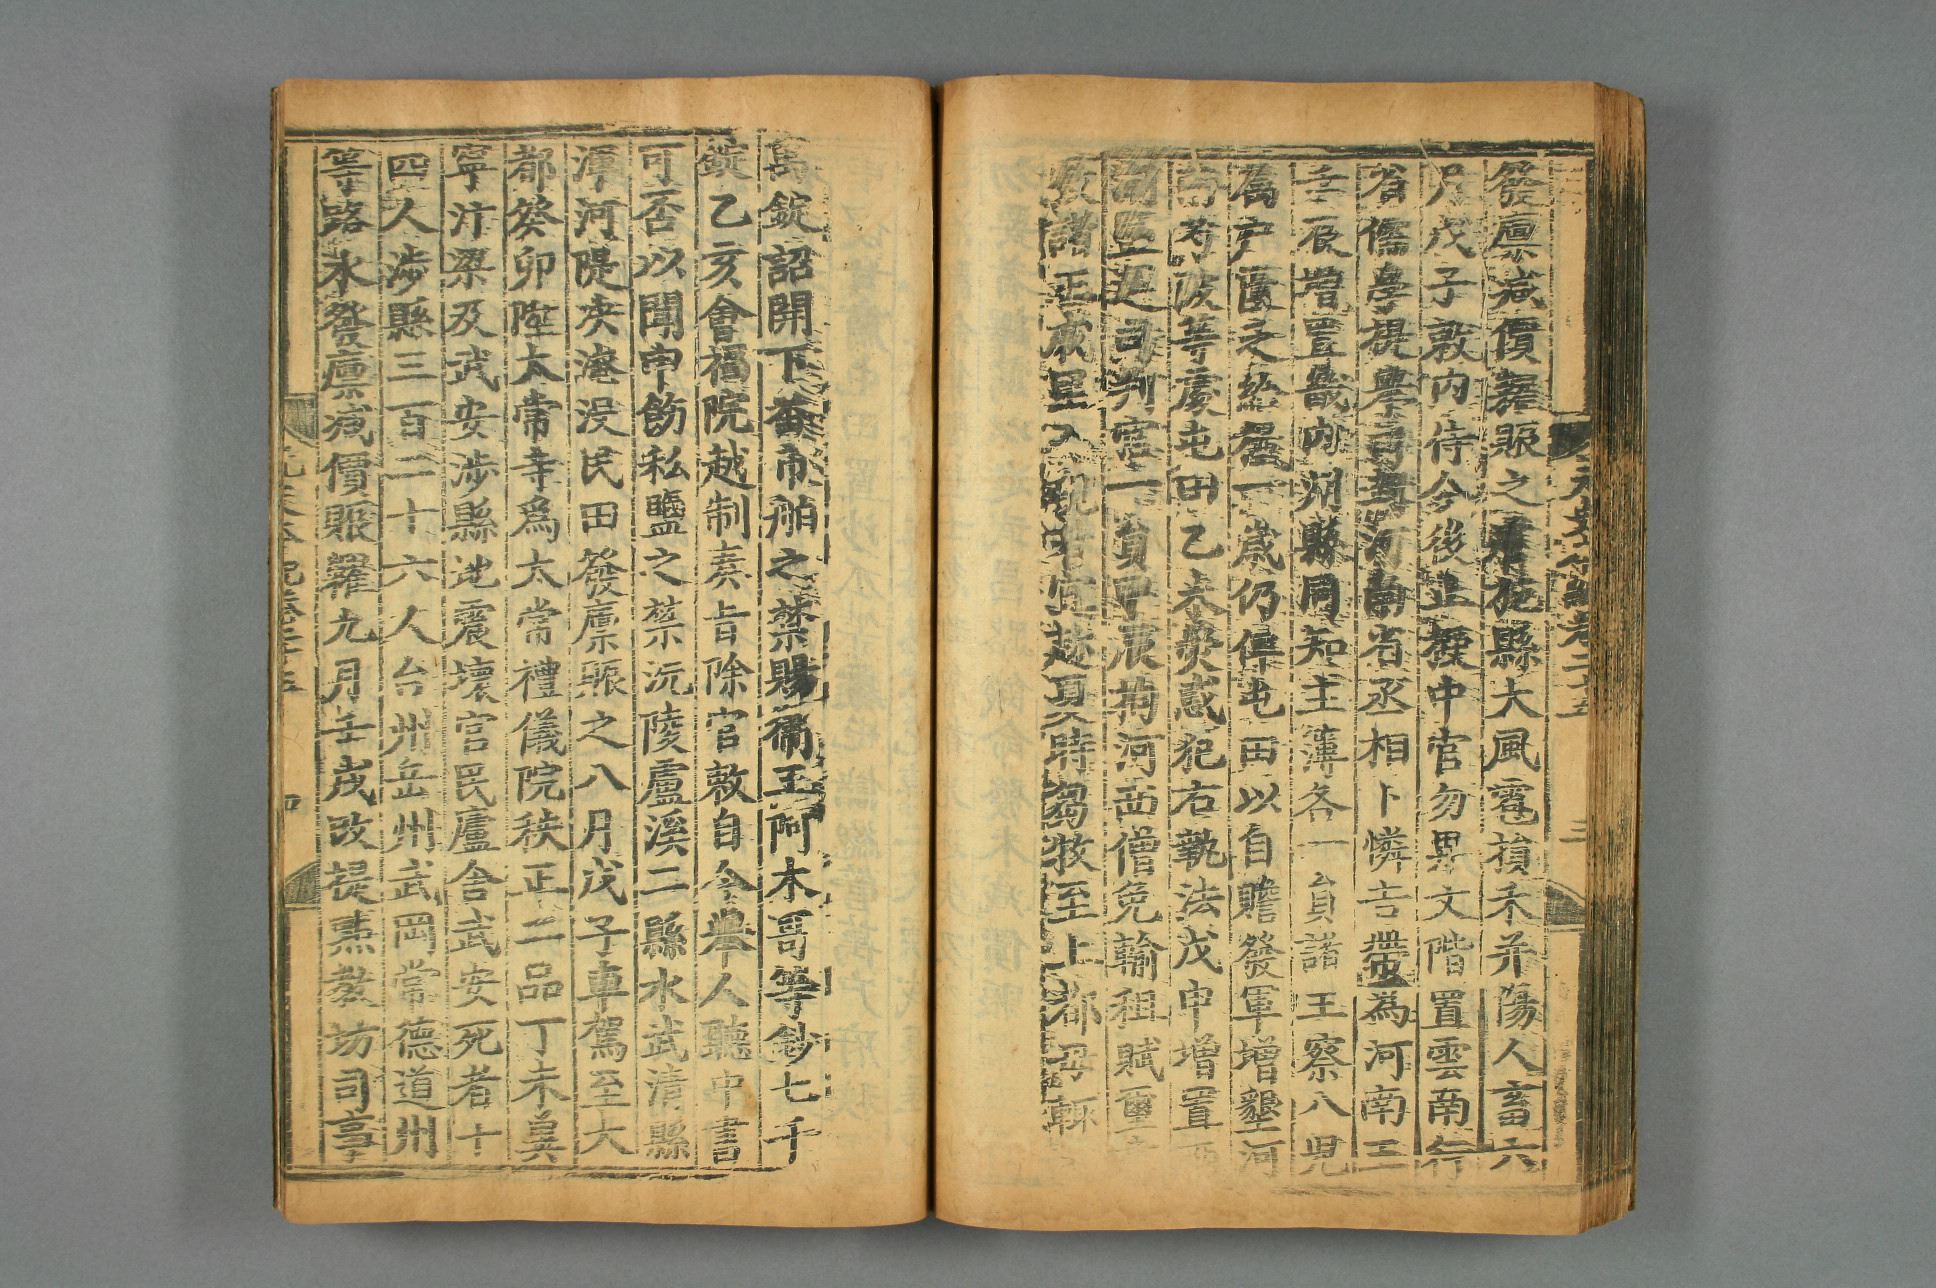 發廩減價糶賑之膚施縣大風雹損禾并傷人畜六
月戊子敕內侍今後止授中官勿畀文階置雲南行
省儒學提舉司河南省丞相卜憐吉帶為河南王
壬辰增置畿內漷縣同知主簿各一員諸王察八兒
屬戶匱乏給糧一歲仍俾屯田以自贍發軍增墾河
南芍陂等處屯田乙未熒惑犯右執法戊申增置西
司判官一員甲辰拘河西僧免輸租賦璽
敕諸王戚里入覲者宜趁夏時芻牧至上都毋輒
萬錠詔開下番市舶之禁賜衛王阿木哥等鈔七千
錠乙亥會福院越制奏旨除官敕自今舉人聽中書
可否以聞申飭私鹽之禁沅陵盧溪二縣水武清縣
渾河隄決淹沒民田發廩賑之八月戊子車駕至大
都癸卯陞太常寺爲太常禮儀院秩正二品丁未冀
寧汴梁及武安涉縣地震壞官民廬舍武安死者十
四人涉縣三百二十六人台州岳州武岡常德道州
等路水發廩減價賑糶九月壬戌改提點教坊司事
元史本紀卷二十五
三
四